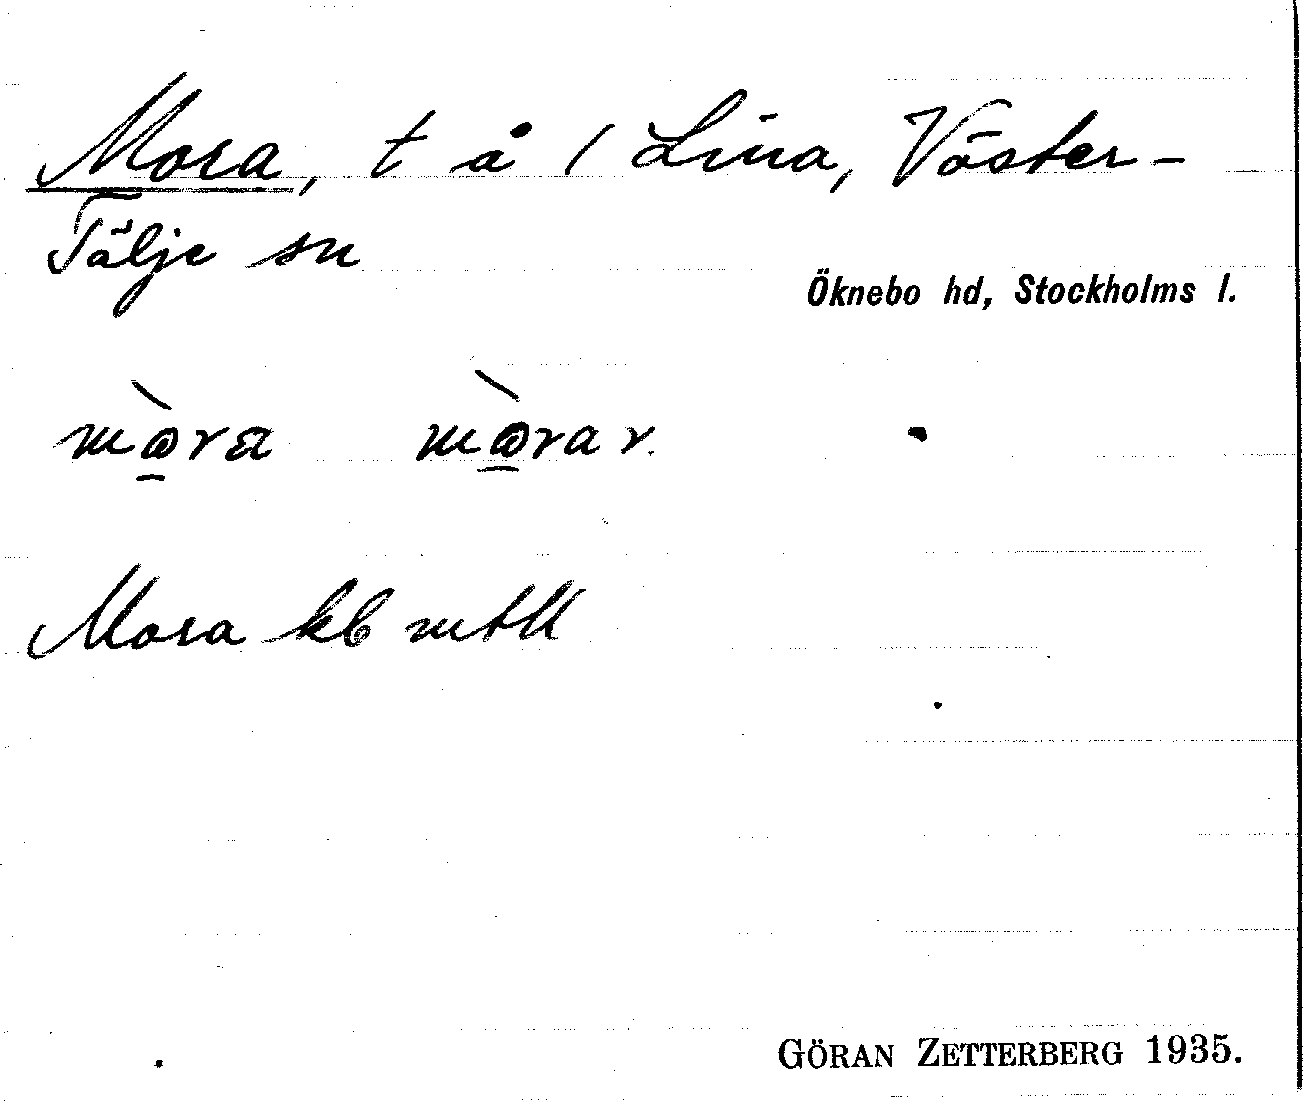 Mora, t å / Lina, Väster-
Tälje sn
Öknebo hd, Stockholms l.
mòra mòrar
Mora kb mtll
GÖRAN ZETTERBERG 1935.